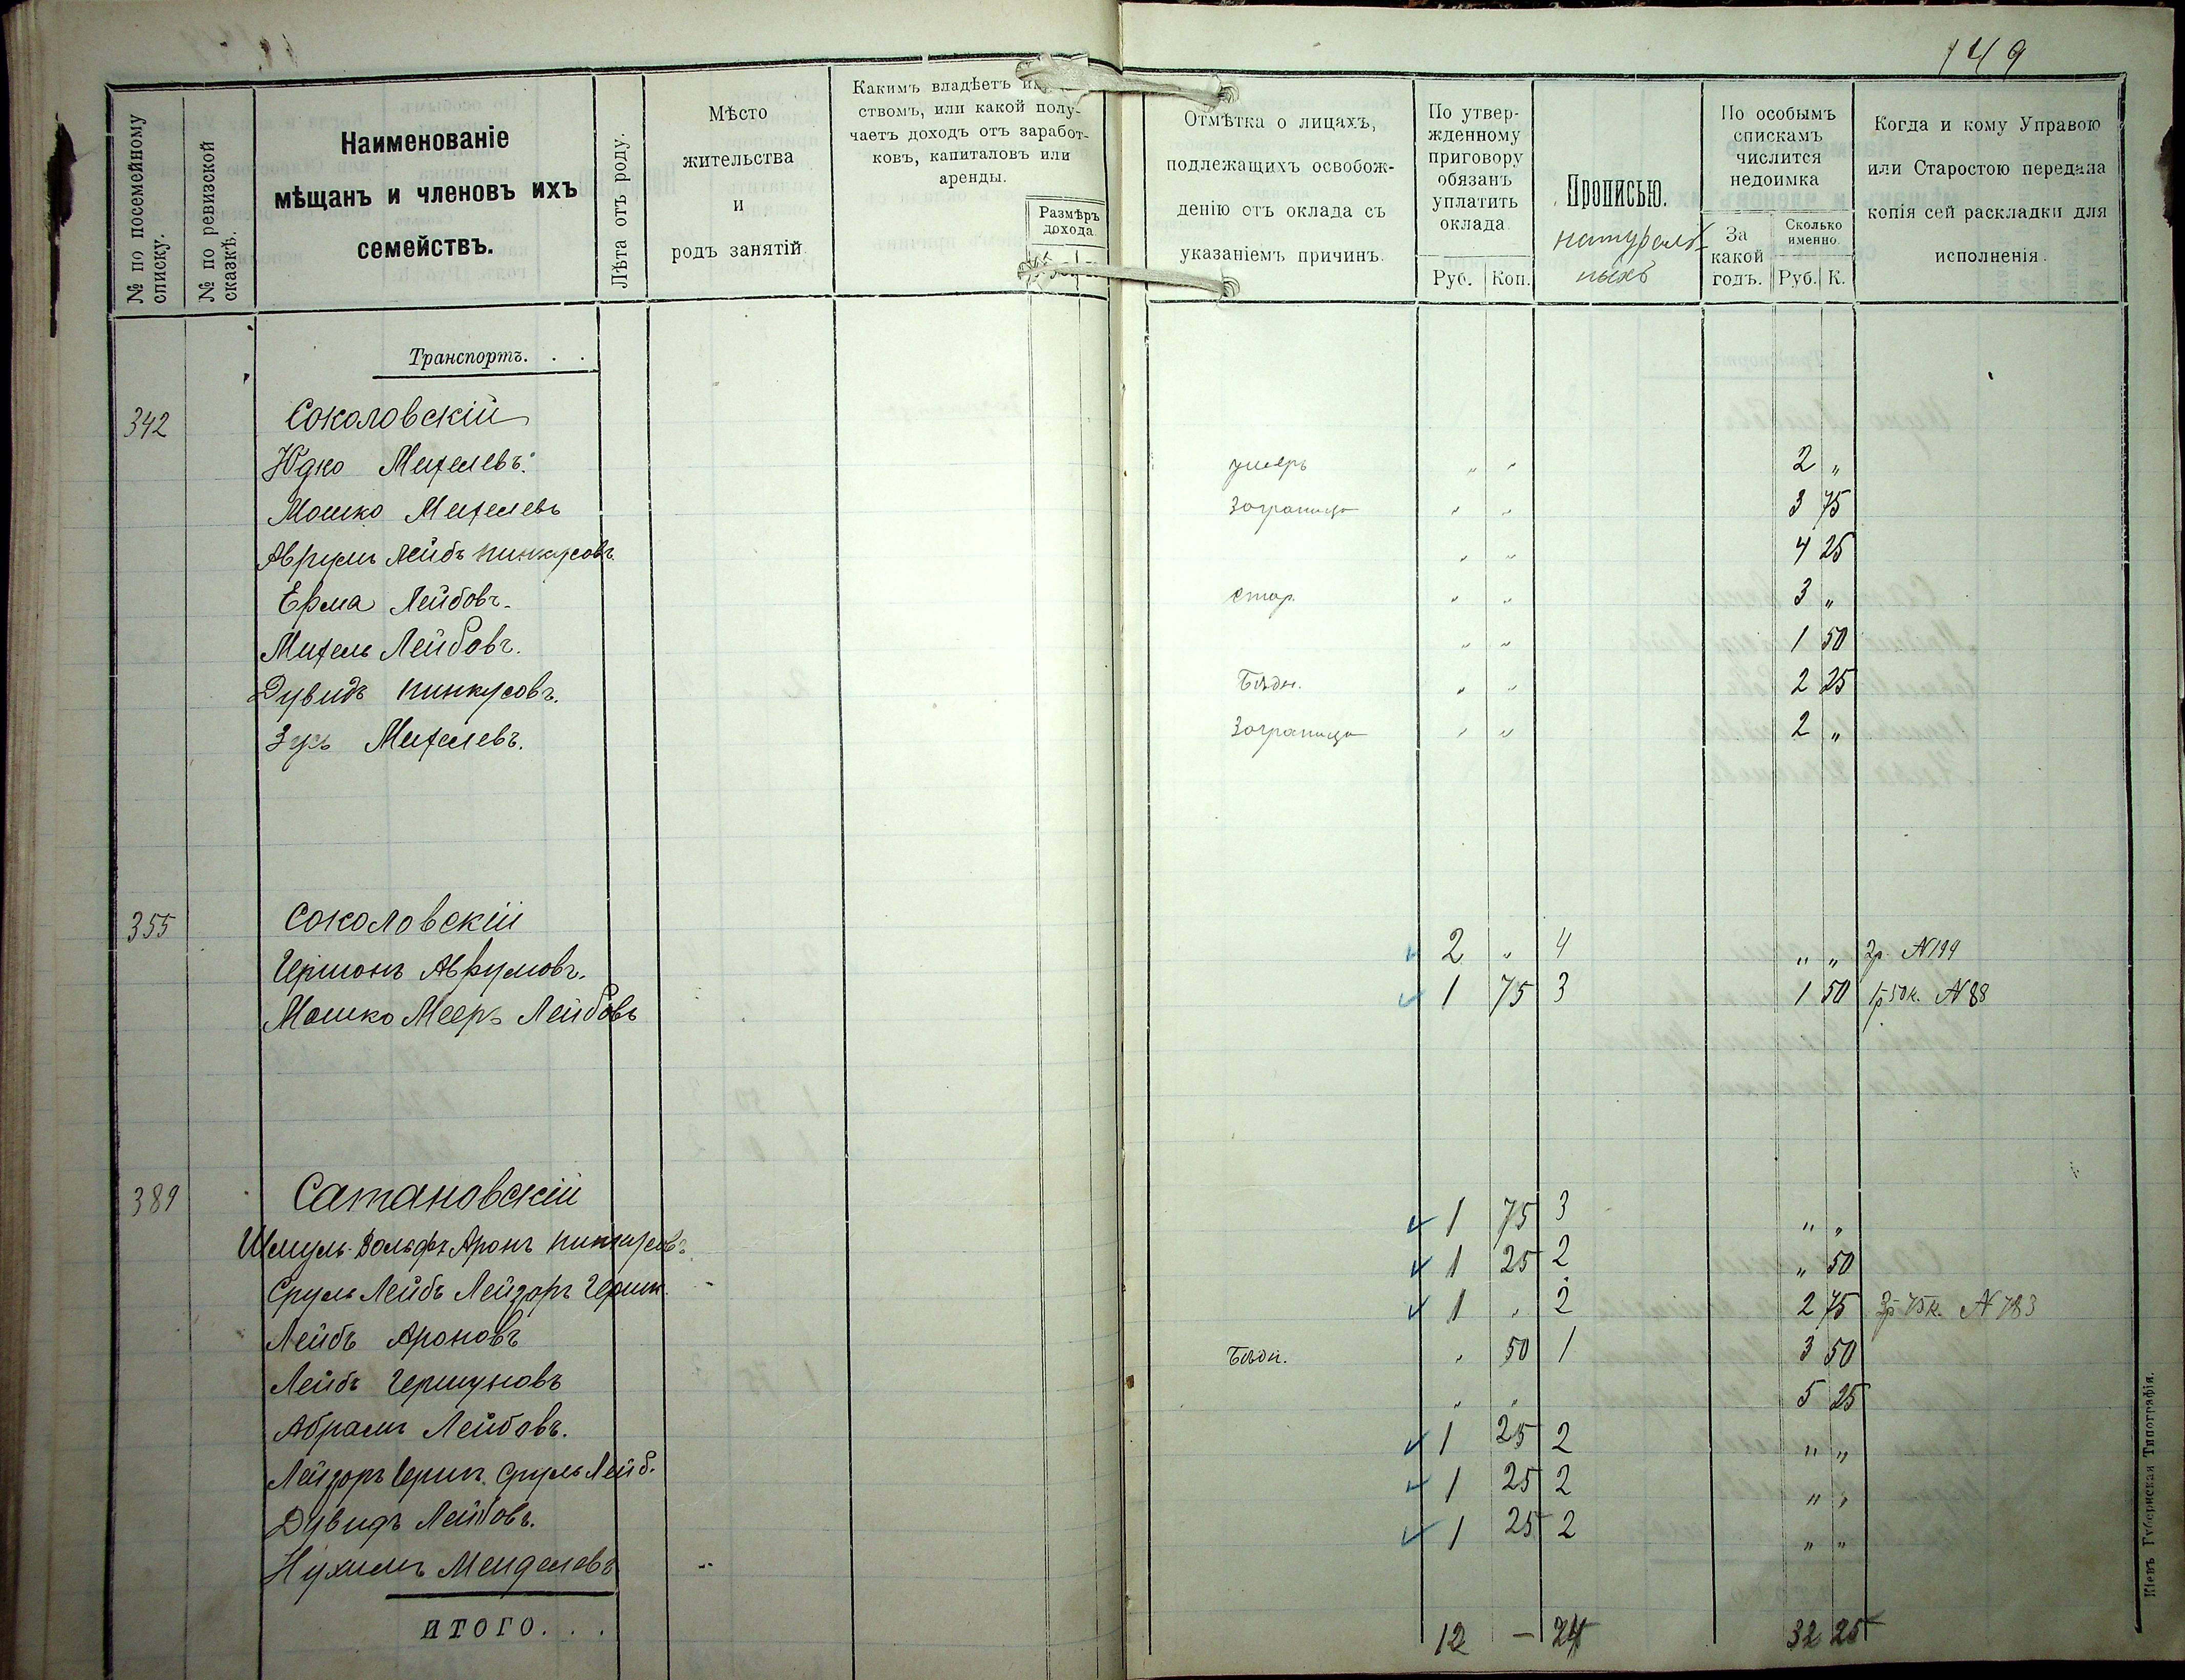 149
№ по посемейному списку.
№ по ревизской сказкѣ.
Наименованіе
мѣщанъ и членовъ ихъ
семействъ.
Лѣта отъ роду.
Мѣсто
жительства
и
родъ занятій.
Какимъ владѣетъ
ствомъ, или какой полу-
чаетъ доходъ отъ заработ-
ковъ, капиталовъ или
аренды.
Размѣръ
дохода
Отмѣтка о лицахъ,
подлежащихъ освобож-
денію отъ оклада съ
указаніемъ причинъ.
По утвер-
жденному
приговору
обязанъ
уплатить
оклада
Руб. Коп.
Прописью.
натураль-
ныхъ
По особымъ
спискамъ
числится
недоимка
За
какой
годъ.
Сколько
именно.
Руб. К.
Когда и кому Управою
или Старостою передана
копія сей раскладки для
исполненія.
Транспортъ. . .
342 Соколовскій
Юдко Мителевъ. умеръ „ „ 2 „
Мошко Мителевъ заграница „ „ 3 75
Аврумъ Лейбъ Пинкусовъ „ „ 4 25
Ерма Лейбовъ. стар. „ „ 3 „
Митель Лейбовъ. „ „ 1 50
Дувидъ Пинкусовъ. Бѣдн. „ „ 2 25
Зусь Мителевъ. заграница „ „ 2 „
355 Соколовскій
Гершонъ Аврумовъ. 2 „ 4 „ „ 2р. N194
Мошко Мееръ Лейбовъ 1 75 3 1 50 1р 50к. N88
389 Сатановскій
Шмуль-Вольфъ Аронъ Пинкусовъ 1 75 3 „ „
Сруль Лейбъ Лейзоръ Герш. 1 25 2 „ 50
Лейбъ Ароновъ 1 „ 2 2 75 3р 75к. N783
Лейбъ Гершуновъ Бѣдн. „ 50 1 3 50
Абрамъ Лейбовъ. „ „ 5 25
Лейзоръ Герш. Сруль Лейб. 1 25 2 „ „
Дувидъ Лейбовъ. 1 25 2 „ „
Нухимъ Менделевъ 1 25 2 „ „
ИТОГО. . . 12 — 24 32 25
Кіевъ Губернская Типографія.